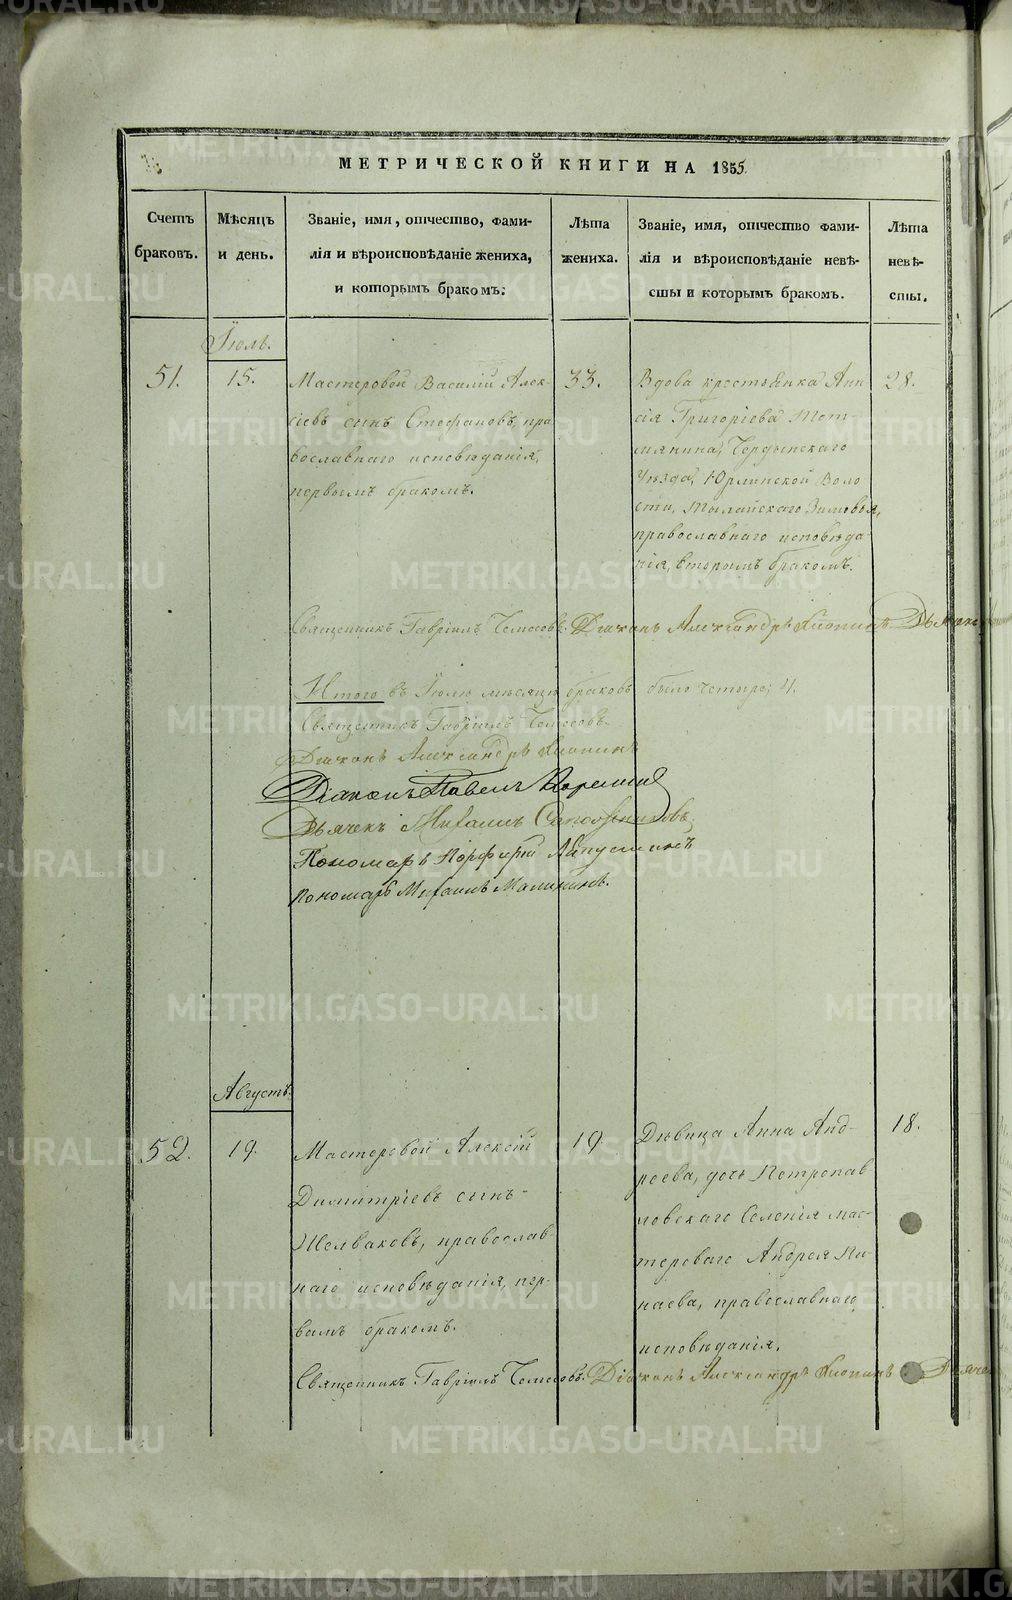 МЕТРИЧЕСКОЙ КНИГИ НА 1855.
Счетъ браковъ.
Мѣсяцъ и день.
Званіе, имя, отчество, фами-
лія и вѣроисповѣданіе жениха,
и которымъ бракомъ:
Лѣта жениха.
Званіе, имя, отчество фами-
лія и вѣроисповѣданіе невѣ-
сты и которымъ бракомъ.
Лѣта невѣ-
сты.
Іюль.
51.
15.
Мастеровой Василій Алек-
сіевъ сынъ Стефановъ, пра
вославнаго исповѣданія,
первымъ бракомъ.
33.
Вдова крестьянка Анн
сія Григоріева
Чердынскаго
Уѣзда, Юрлинской Воло
сти, Зимовья,
православнаго исповѣда-
нія, вторымъ бракомъ.
28.
Священникъ Гавріилъ Діаконъ Александръ
Итого въ Іюлѣ мѣсяцѣ браковъ было четыре, 4.
Священникъ Гавріилъ
Діаконъ Александръ
Діаконъ Павелъ
Дьячекъ Михаилъ
Пономарь Порфирій
Пономарь Михаилъ Малининъ.
Августъ.
52.
19.
Мастеровой Алексій
Димитріевъ сынъ
Шелваковъ, православ
наго исповѣданія, пер-
вымъ бракомъ.
19.
Дѣвица Анна Анд-
реева, дочь Петропав
ловскаго Селенія мас-
тероваго Андрея Пи
наева, православнаго
исповѣданія.
18.
Священникъ Гавріилъ Діаконъ Александръ